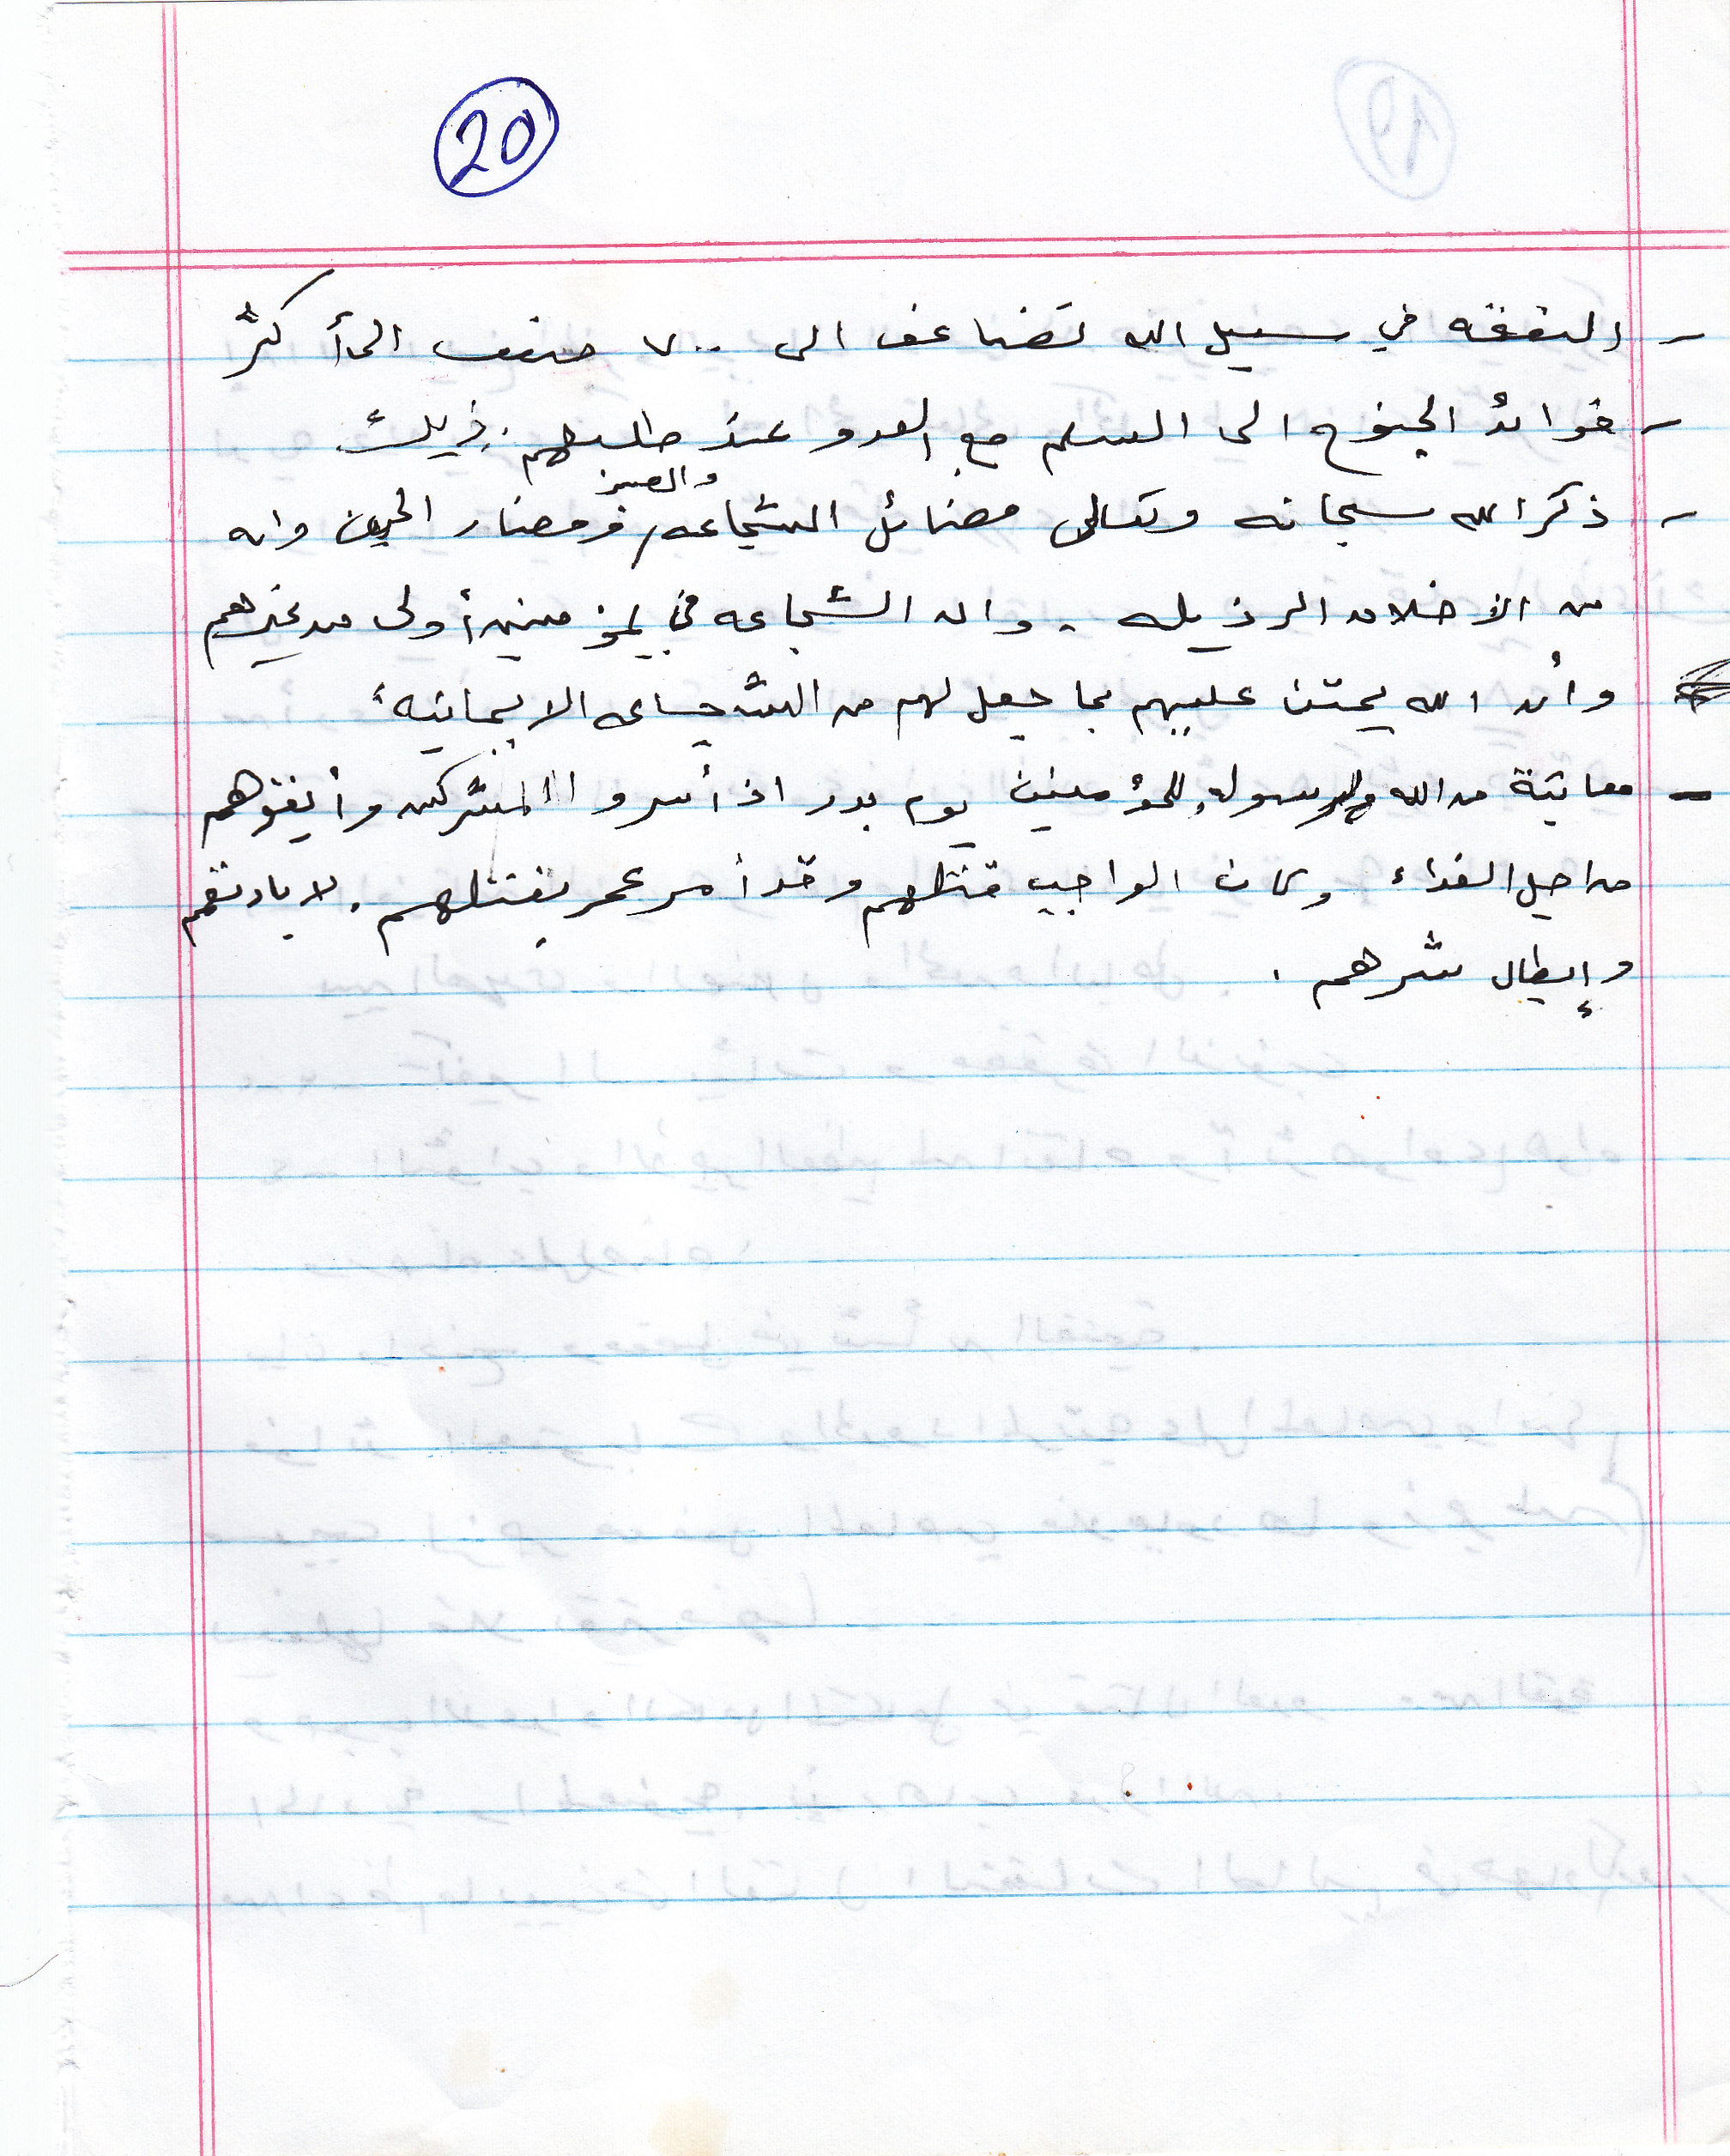 20
- النفقه في سبيل الله تضاعف الى ٧٠٠ ضعف الى أكثر
- فوائد الجنوح الى السلم مع العدو عند طلبهم ذلك
والصبر
- ذكر الله سبحانه وتعالى فضائل الشجاعه ومضار الجبن وانه
من الأخلاق الرذيله . وان الشجاعه في المؤمنين أولى من غيرهم
وأن الله يمتن عليهم بما جعل لهم من الشجاعه الايمانيه
- معاتبة من الله ولرسوله للمؤمنين يوم بدر اذ أسروا المشركين وأبقوهم
من اجل الفداء وكان الواجب قتلهم وقد أمر عمر بقتلهم . لابادتهم
وإبطال شرهم .